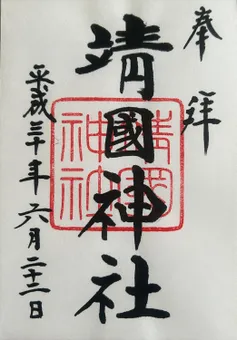 奉拝
靖國神社
靖國神社
平成三十年六月二十二日